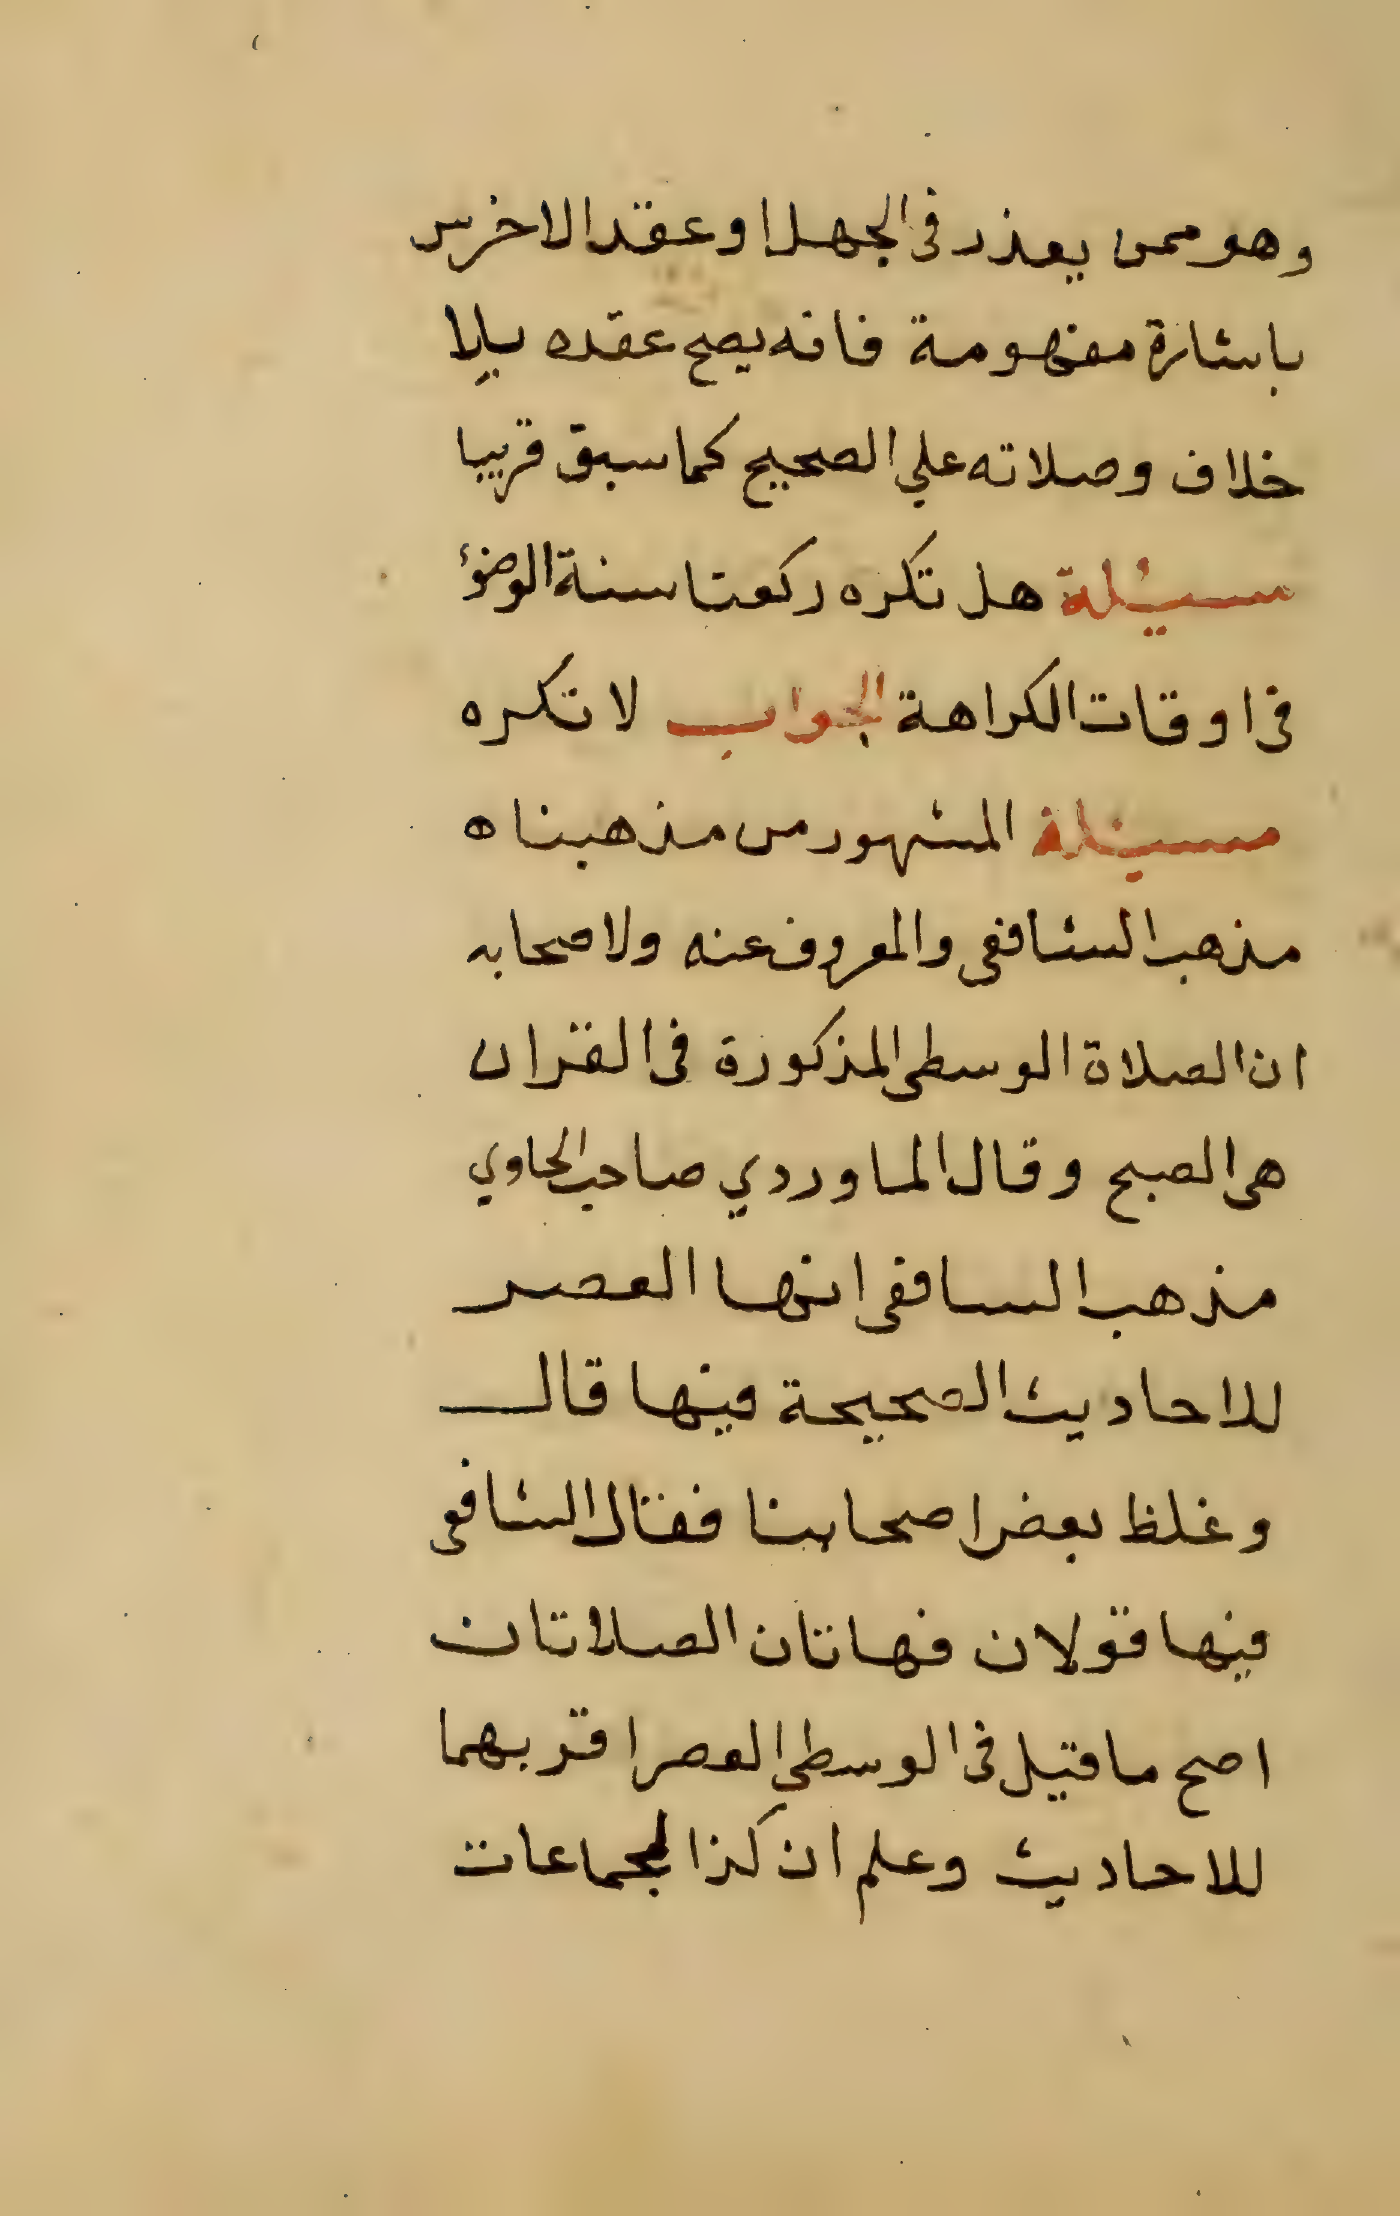 وهو ممن يعذر في الجهل او عقد الاخرس
باشارة مفهومة فانه يصح عقده بلا
خلاف وصلاته علي الصحيح كما سبق قريبا
مسيئلة هل تكره ركعتا سنة الوضؤ
في اوقات الكراهة الجواب لا تكره
مسيئلة المشهور من مذهبنا ه
مذهب الشافعى والمعروف عنه ولاصحابه
ان الصلاة الوسطى المذكورة فى القران
هى الصبح وقال الماوردي صاحب الحاوي
مذهب السافعى انها العصر
للاحاديث الصحيحة فيها قال
وغلظ بعض اصحابنا فقال الشافعى
فيها قولان فهاتان الصلاتان
اصح ما قيل فى الوسطى العصر اقربهما
للاحاديث وعلم ان كذا لجماعات